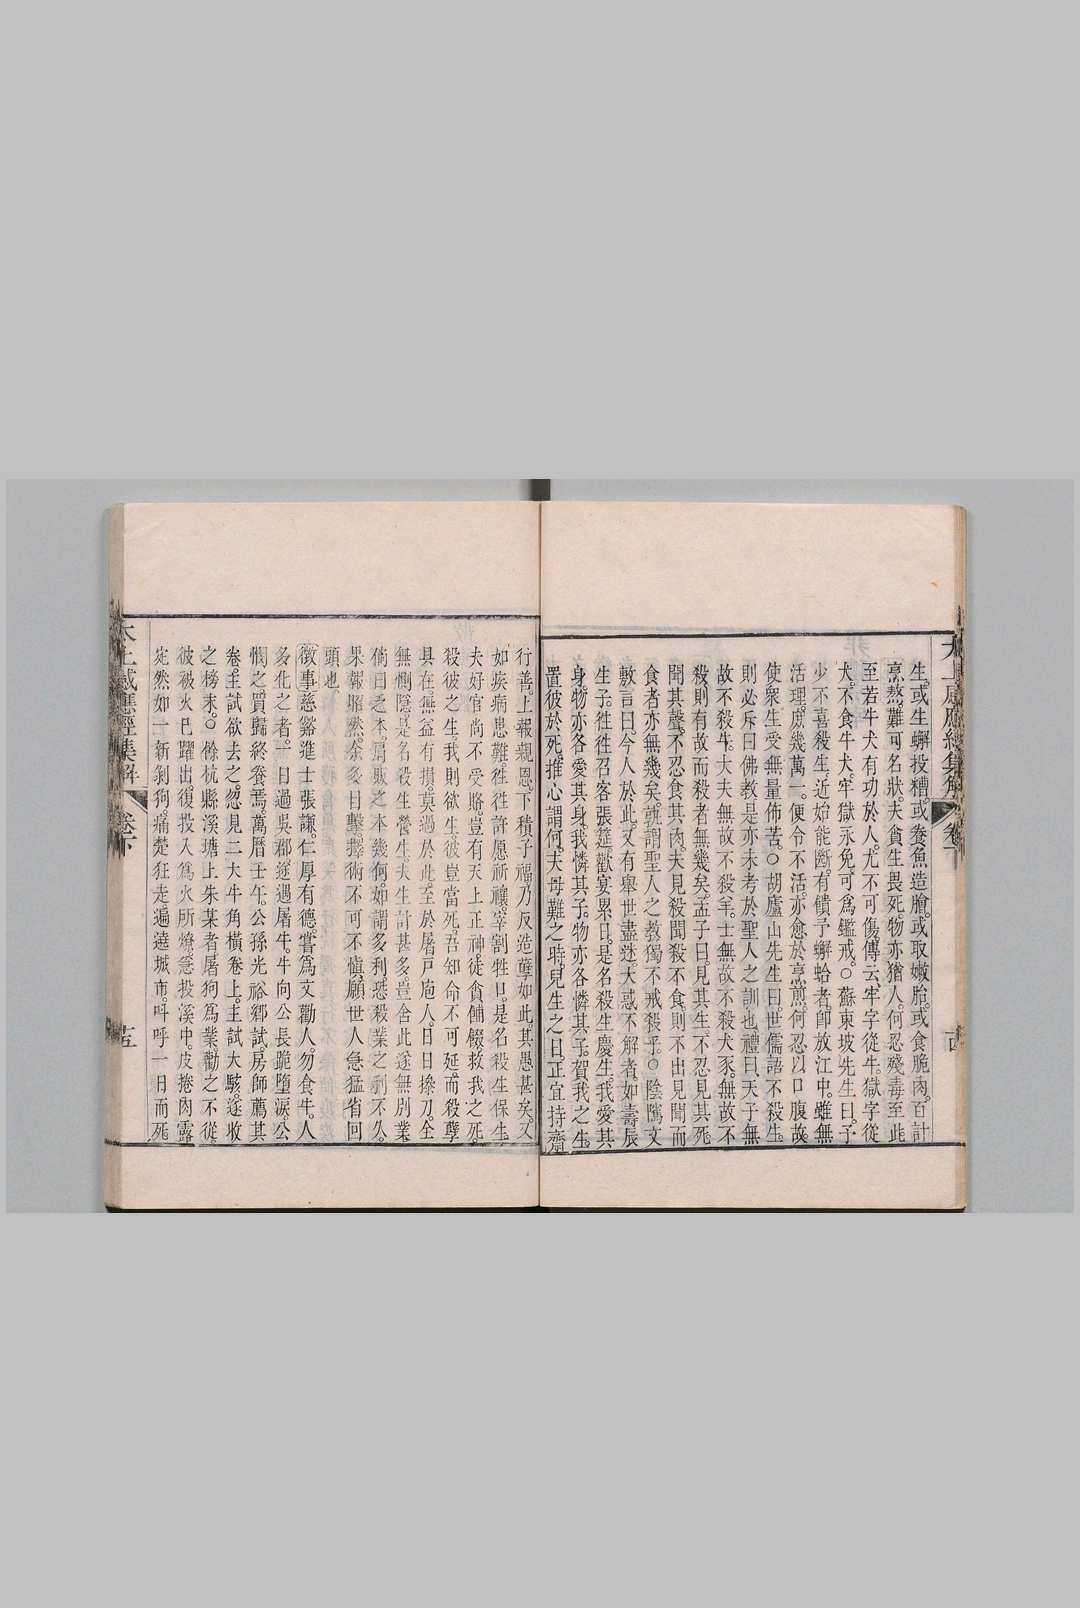 生。或生蠏投糟。或養魚造膾。或取嫩胎。或食脆肉。百計
烹熬。難可名狀。夫貪生畏死。物亦猶人。何忍殘毒至此
至若牛犬有功於人。尤不可傷。傳云。牢字從牛。獄字從
犬。不食牛犬。牢獄永免。可爲鑑戒。○蘇東坡先生曰。予
少不喜殺生。近始能斷。有饋予蠏蛤者。卽放江中。雖無
活理。庶幾萬一。便令不活。亦愈於烹煎。何忍以口腹故。
使衆生受無量怖苦。○胡廬山先生曰。世儒語不殺生。
則必斥曰佛教。是亦未考於聖人之訓也。禮曰。天子無
故不殺牛。大夫無故不殺羊。士無故不殺犬豕。無故不
殺。則有故而殺者無幾矣。孟子曰。見其生。不忍見其死。
聞其聲。不忍食其肉。夫見殺聞殺不食。則不出見聞而
食者亦無幾矣。孰謂聖人之教獨不戒殺乎。○陰隲文
敷言曰。今人於此。又有舉世盡迷。大惑不解者。如壽辰
生子。徃徃召客張筵。歡宴累日。是名殺生慶生。我愛其
身。物亦各愛其身。我憐其子。物亦各憐其子。賀我之生。
置彼於死。推心謂何。夫母難之時。兒生之日。正宜持齋
太上感應經集解 卷下 十四
行善。上報親恩。下積子福。乃反造孽如此。其愚甚矣。又
如疾病患難。徃徃許愿祈禳。宰割牲口。是名殺生保生。
夫好官尚不受賂。豈有天上正神。徒貪餔餟。救我之死。
殺彼之生。我則欲生。彼豈當死。吾知命不可延。而殺孽
具在。無益有損。莫過於此。至於屠戸庖人。日日操刀。全
無惻隱。是名殺生營生。夫生計甚多。豈舍此遂無別業。
倘曰之本屠販之本幾何。如謂多利。恐殺業之利不久。
果報照然。余多目擊。擇術不可不愼。願世人急猛省回
頭也。
徵事慈谿進士張謙。仁厚有德。嘗爲文勸人勿食牛。人
多化之者。一日過吳郡。遂遇屠牛。牛向公長跪墮淚。公
憫之。買歸終養焉。萬曆壬午。公孫光裕鄉試。房師薦其
卷。主試欲去之。忽見二大牛角橫卷上。主試大駭。遂收
之榜末。○餘杭縣溪塘上朱某者。屠狗爲業。勸之不從。
彼被火已躍出。復投入。爲火所燎。急投溪中。皮捲肉露
宛然如一新剝狗。痛楚狂走。遍遶城市。呌呼一日而死
太上感應經集解 卷下 十五